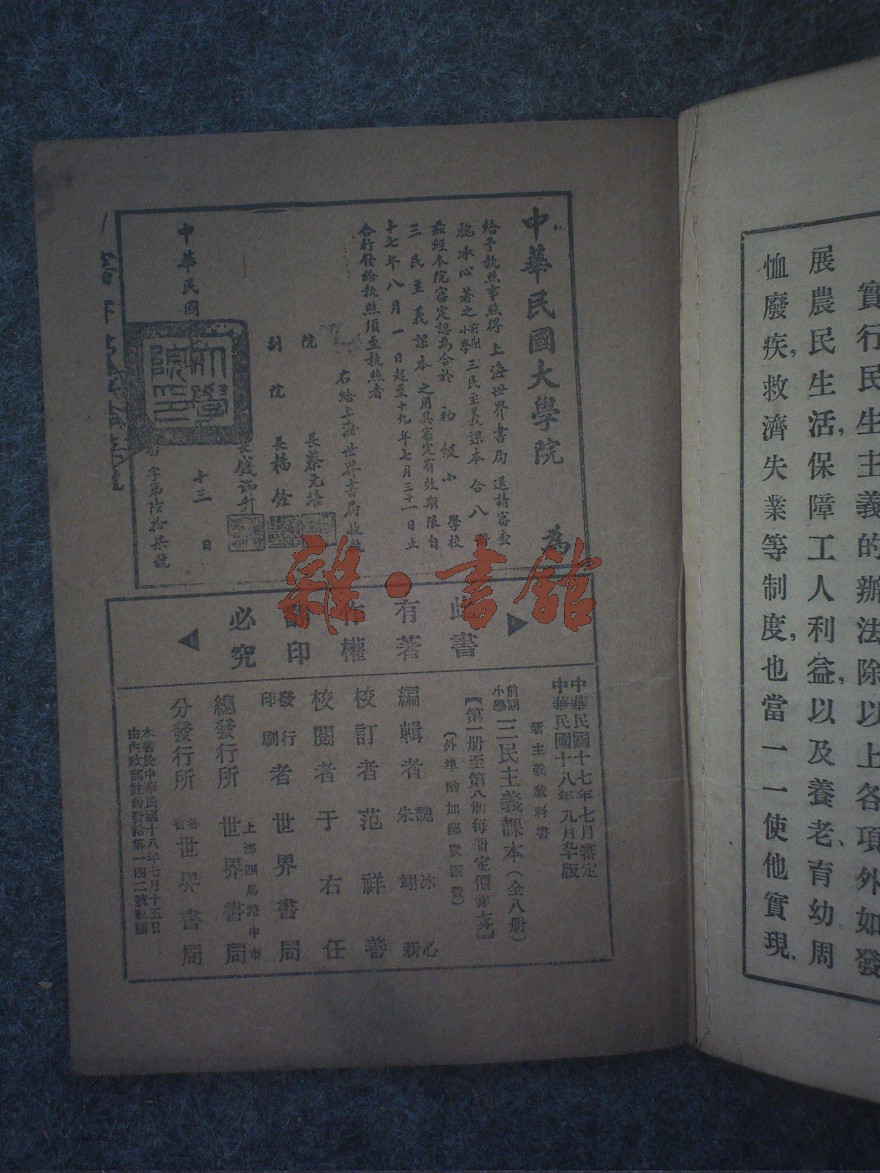 實行民生主義的辦法除以上各項外如發
展農民生活,保障工人利益,以及養老、育幼、周
恤廢疾,救濟失業等制度,也當一一使他實現.
中華民國大學院 為
給予執照事照得上海世界書局送請審查
魏冰心著之前期小學三民主義課本合八冊
茲經本院審定認為合於初級小學校
三民主義課本之用其審定有效期限自
十七年八月一日起至十九年七月三十一日止
合行發給執照須至執照者
右給上海世界書局收執
院長蔡元培
副院長楊銓
長錢端升
中華民國 十三日
字第陸拾柒號
此書
有著
作權
翻印
必究
中華民國十七年七月審定
中華民國十八年九月 版
新主義教科書
前期小學 三民主義課本(全八册)
【第一册至第八册每册定價銀
(外埠酌加郵費匯費)
編輯者 魏冰心 朱翊新
校訂者 范祥善
校閱者 于右任
發行印刷者 世界書局
上海四馬路中市
總發行所 世界書局
分發行所 各省 世界書局
本書於中華民國十八年七月十五日
由內政部註冊發給第一四二號執照
雜·書館